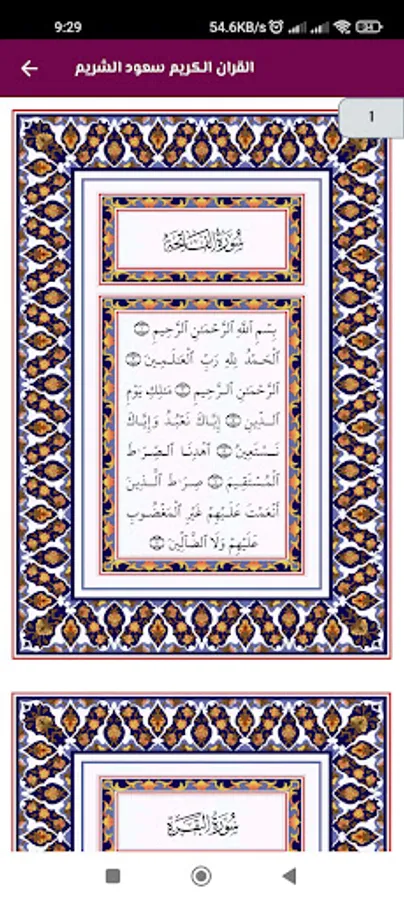 9:29
54.6KB/s
القران الكريم سعود الشريم
1
سُورَةُ الفَاتِحَةِ
بِسْمِ ٱللَّهِ ٱلرَّحْمَٰنِ ٱلرَّحِيمِ
ٱلْحَمْدُ لِلَّهِ رَبِّ ٱلْعَٰلَمِينَ
ٱلرَّحْمَٰنِ ٱلرَّحِيمِ مَٰلِكِ يَوْمِ
ٱلدِّينِ إِيَّاكَ نَعْبُدُ وَإِيَّاكَ
نَسْتَعِينُ ٱهْدِنَا ٱلصِّرَٰطَ
ٱلْمُسْتَقِيمَ صِرَٰطَ ٱلَّذِينَ
أَنْعَمْتَ عَلَيْهِمْ غَيْرِ ٱلْمَغْضُوبِ
عَلَيْهِمْ وَلَا ٱلضَّآلِّينَ
سُورَةُ البَقَرَةِ